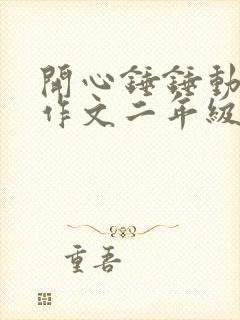 開心錘錘動
作文二年級
重吾